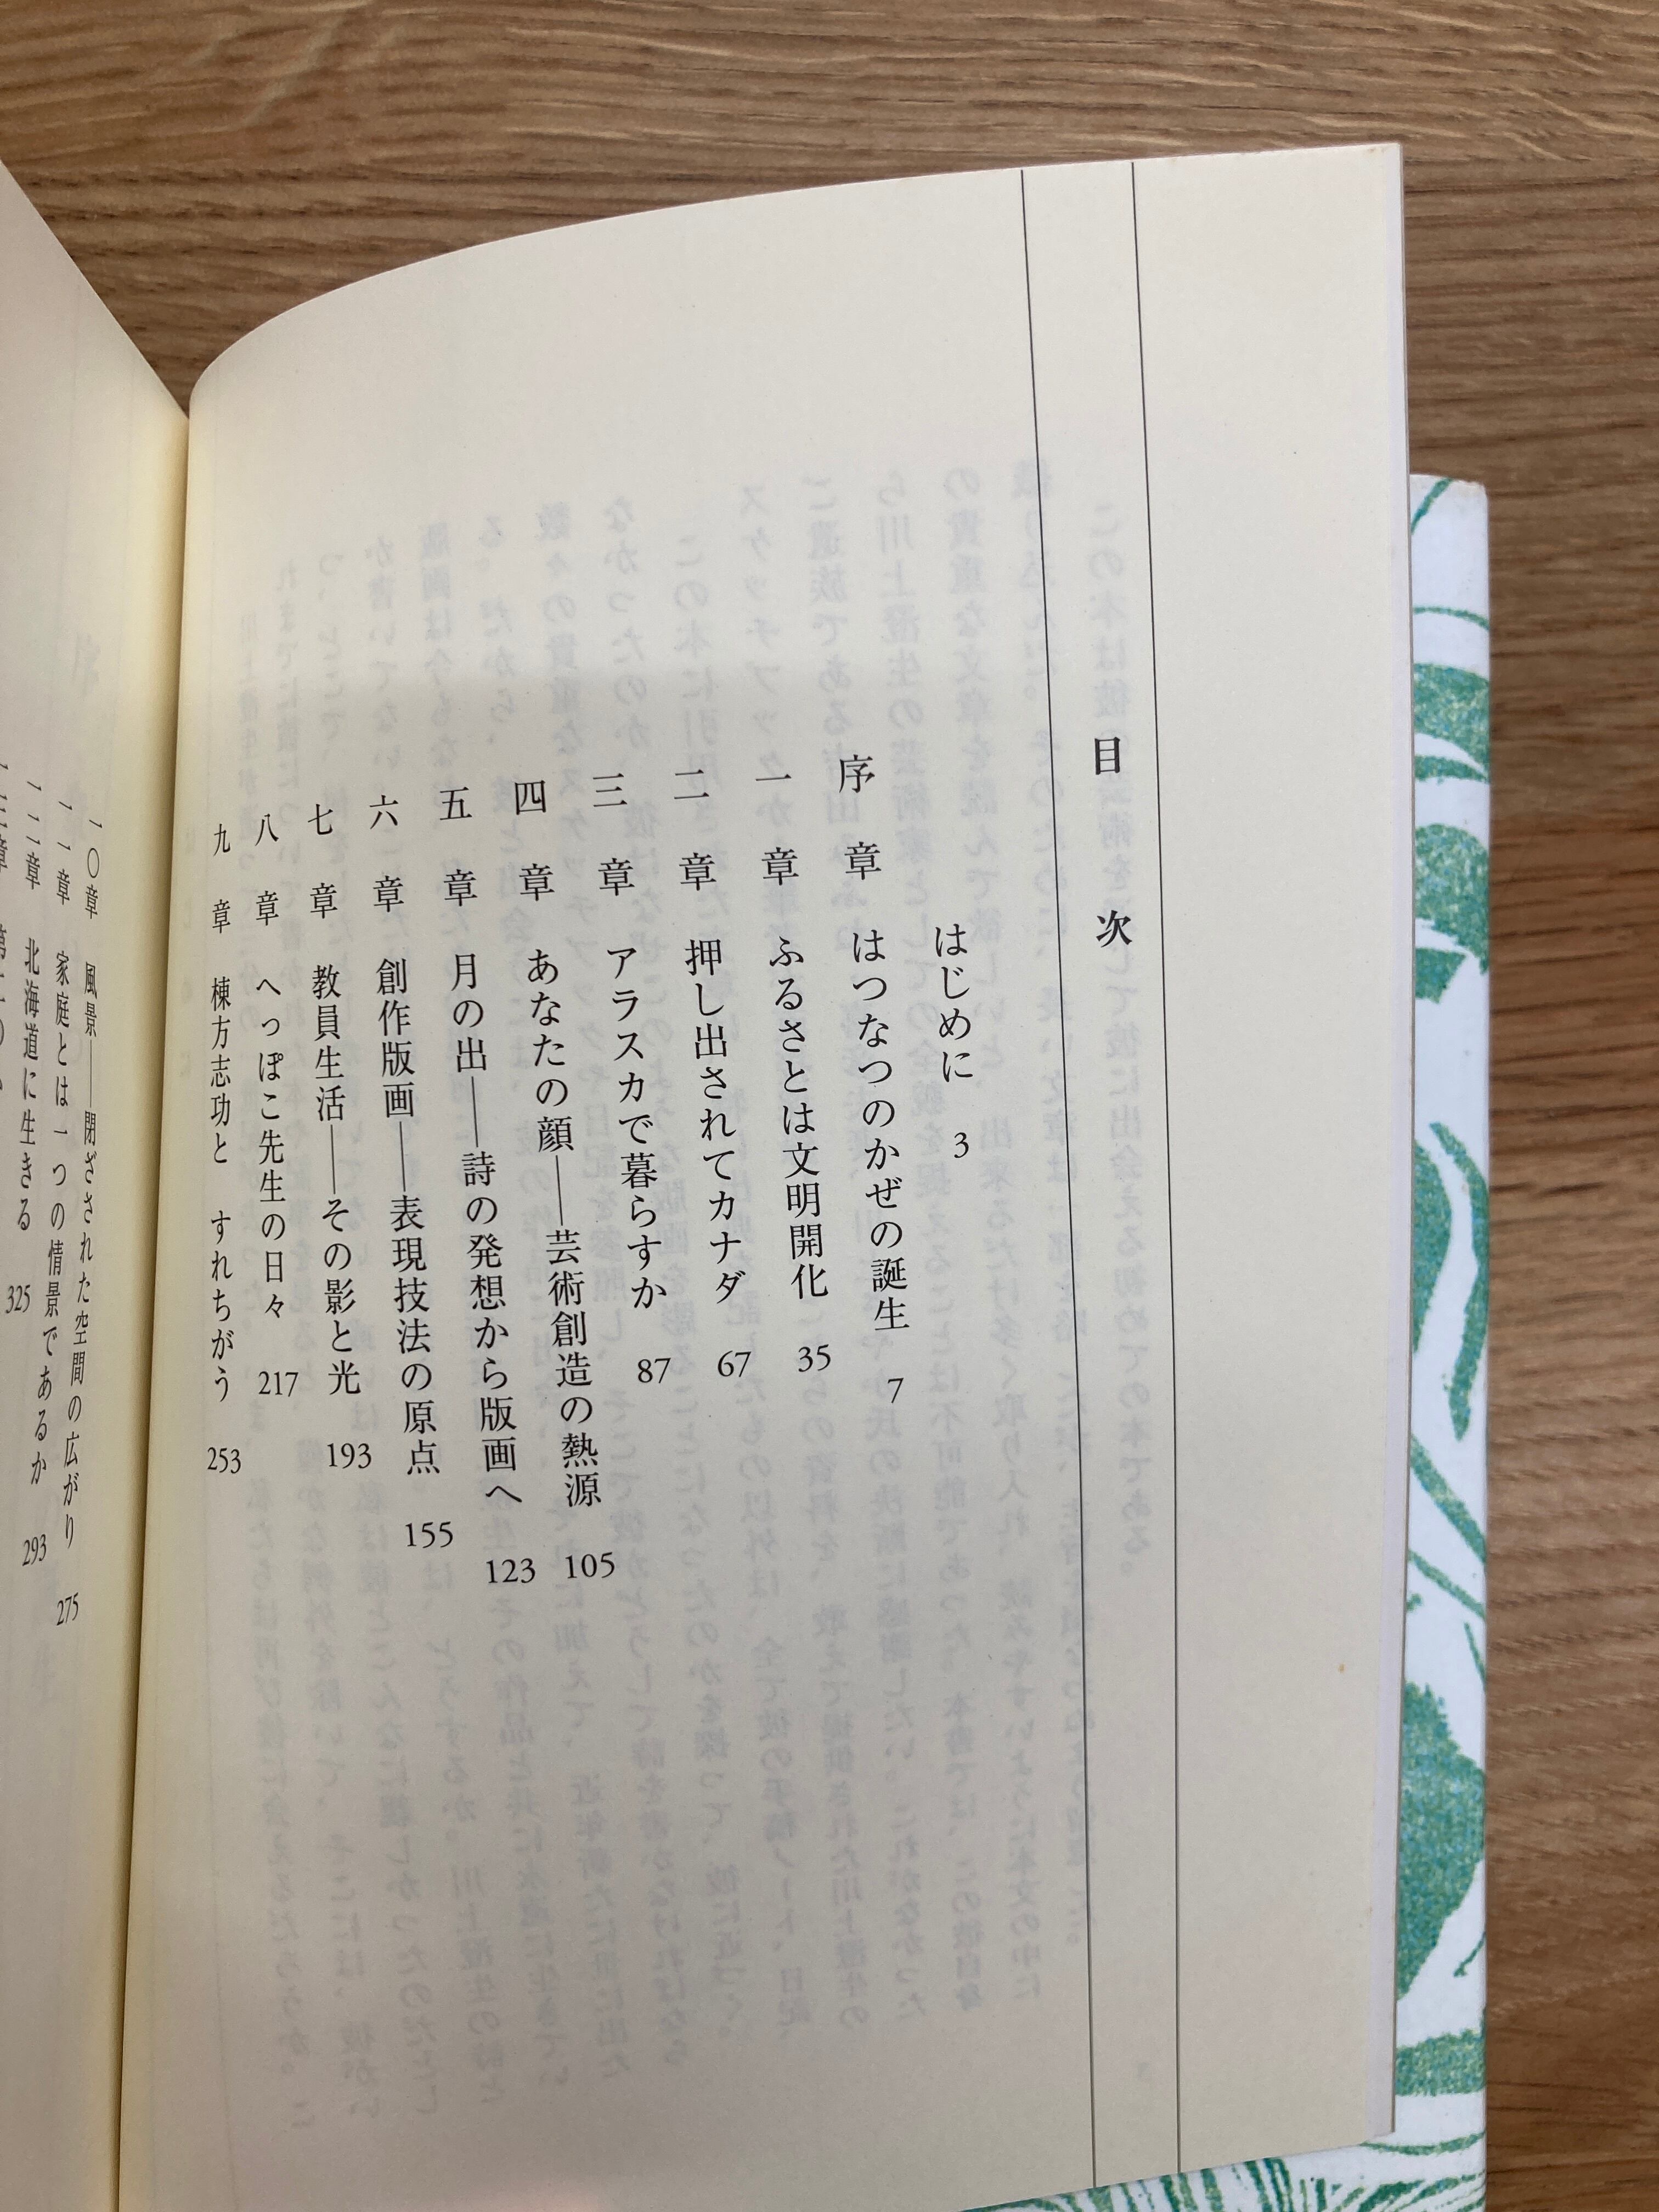 目次
はじめに 3
序章 はつなつのかぜの誕生 7
一章 ふるさとは文明開化 35
二章 押し出されてカナダ 67
三章 アラスカで暮らすか 87
四章 あなたの顔――芸術創造の熱源 105
五章 月の出――詩の発想から版画へ 123
六章 創作版画――表現技法の原点 155
七章 教員生活――その影と光 193
八章 へっぽこ先生の日々 217
九章 棟方志功と すれちがう 253
一〇章 風景――閉ざされた空間の広がり 275
一一章 家庭とは一つの情景であるか 293
一二章 北海道に生きる 325